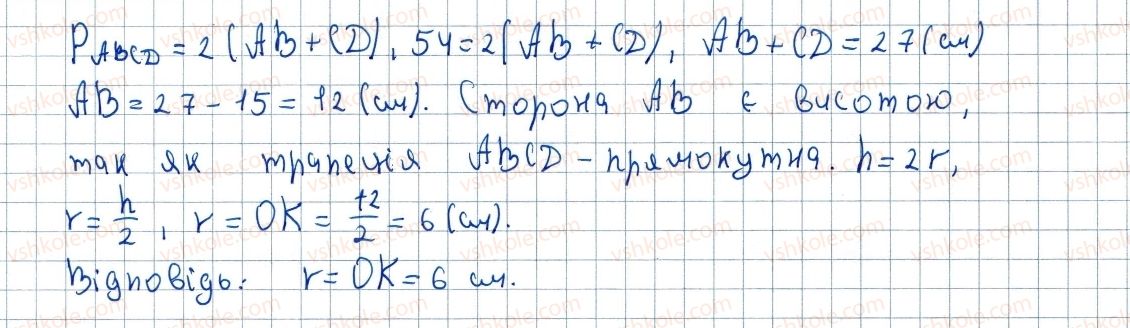 P_ABCD = 2(AB + CD), 54 = 2(AB + CD), AB + CD = 27 (см)
AB = 27 - 15 = 12 (см). Сторона AB є висотою,
так як трапеція ABCD - прямокутна. h = 2r,
r = h/2, r = OK = 12/2 = 6 (см).
Відповідь: r = OK = 6 см.